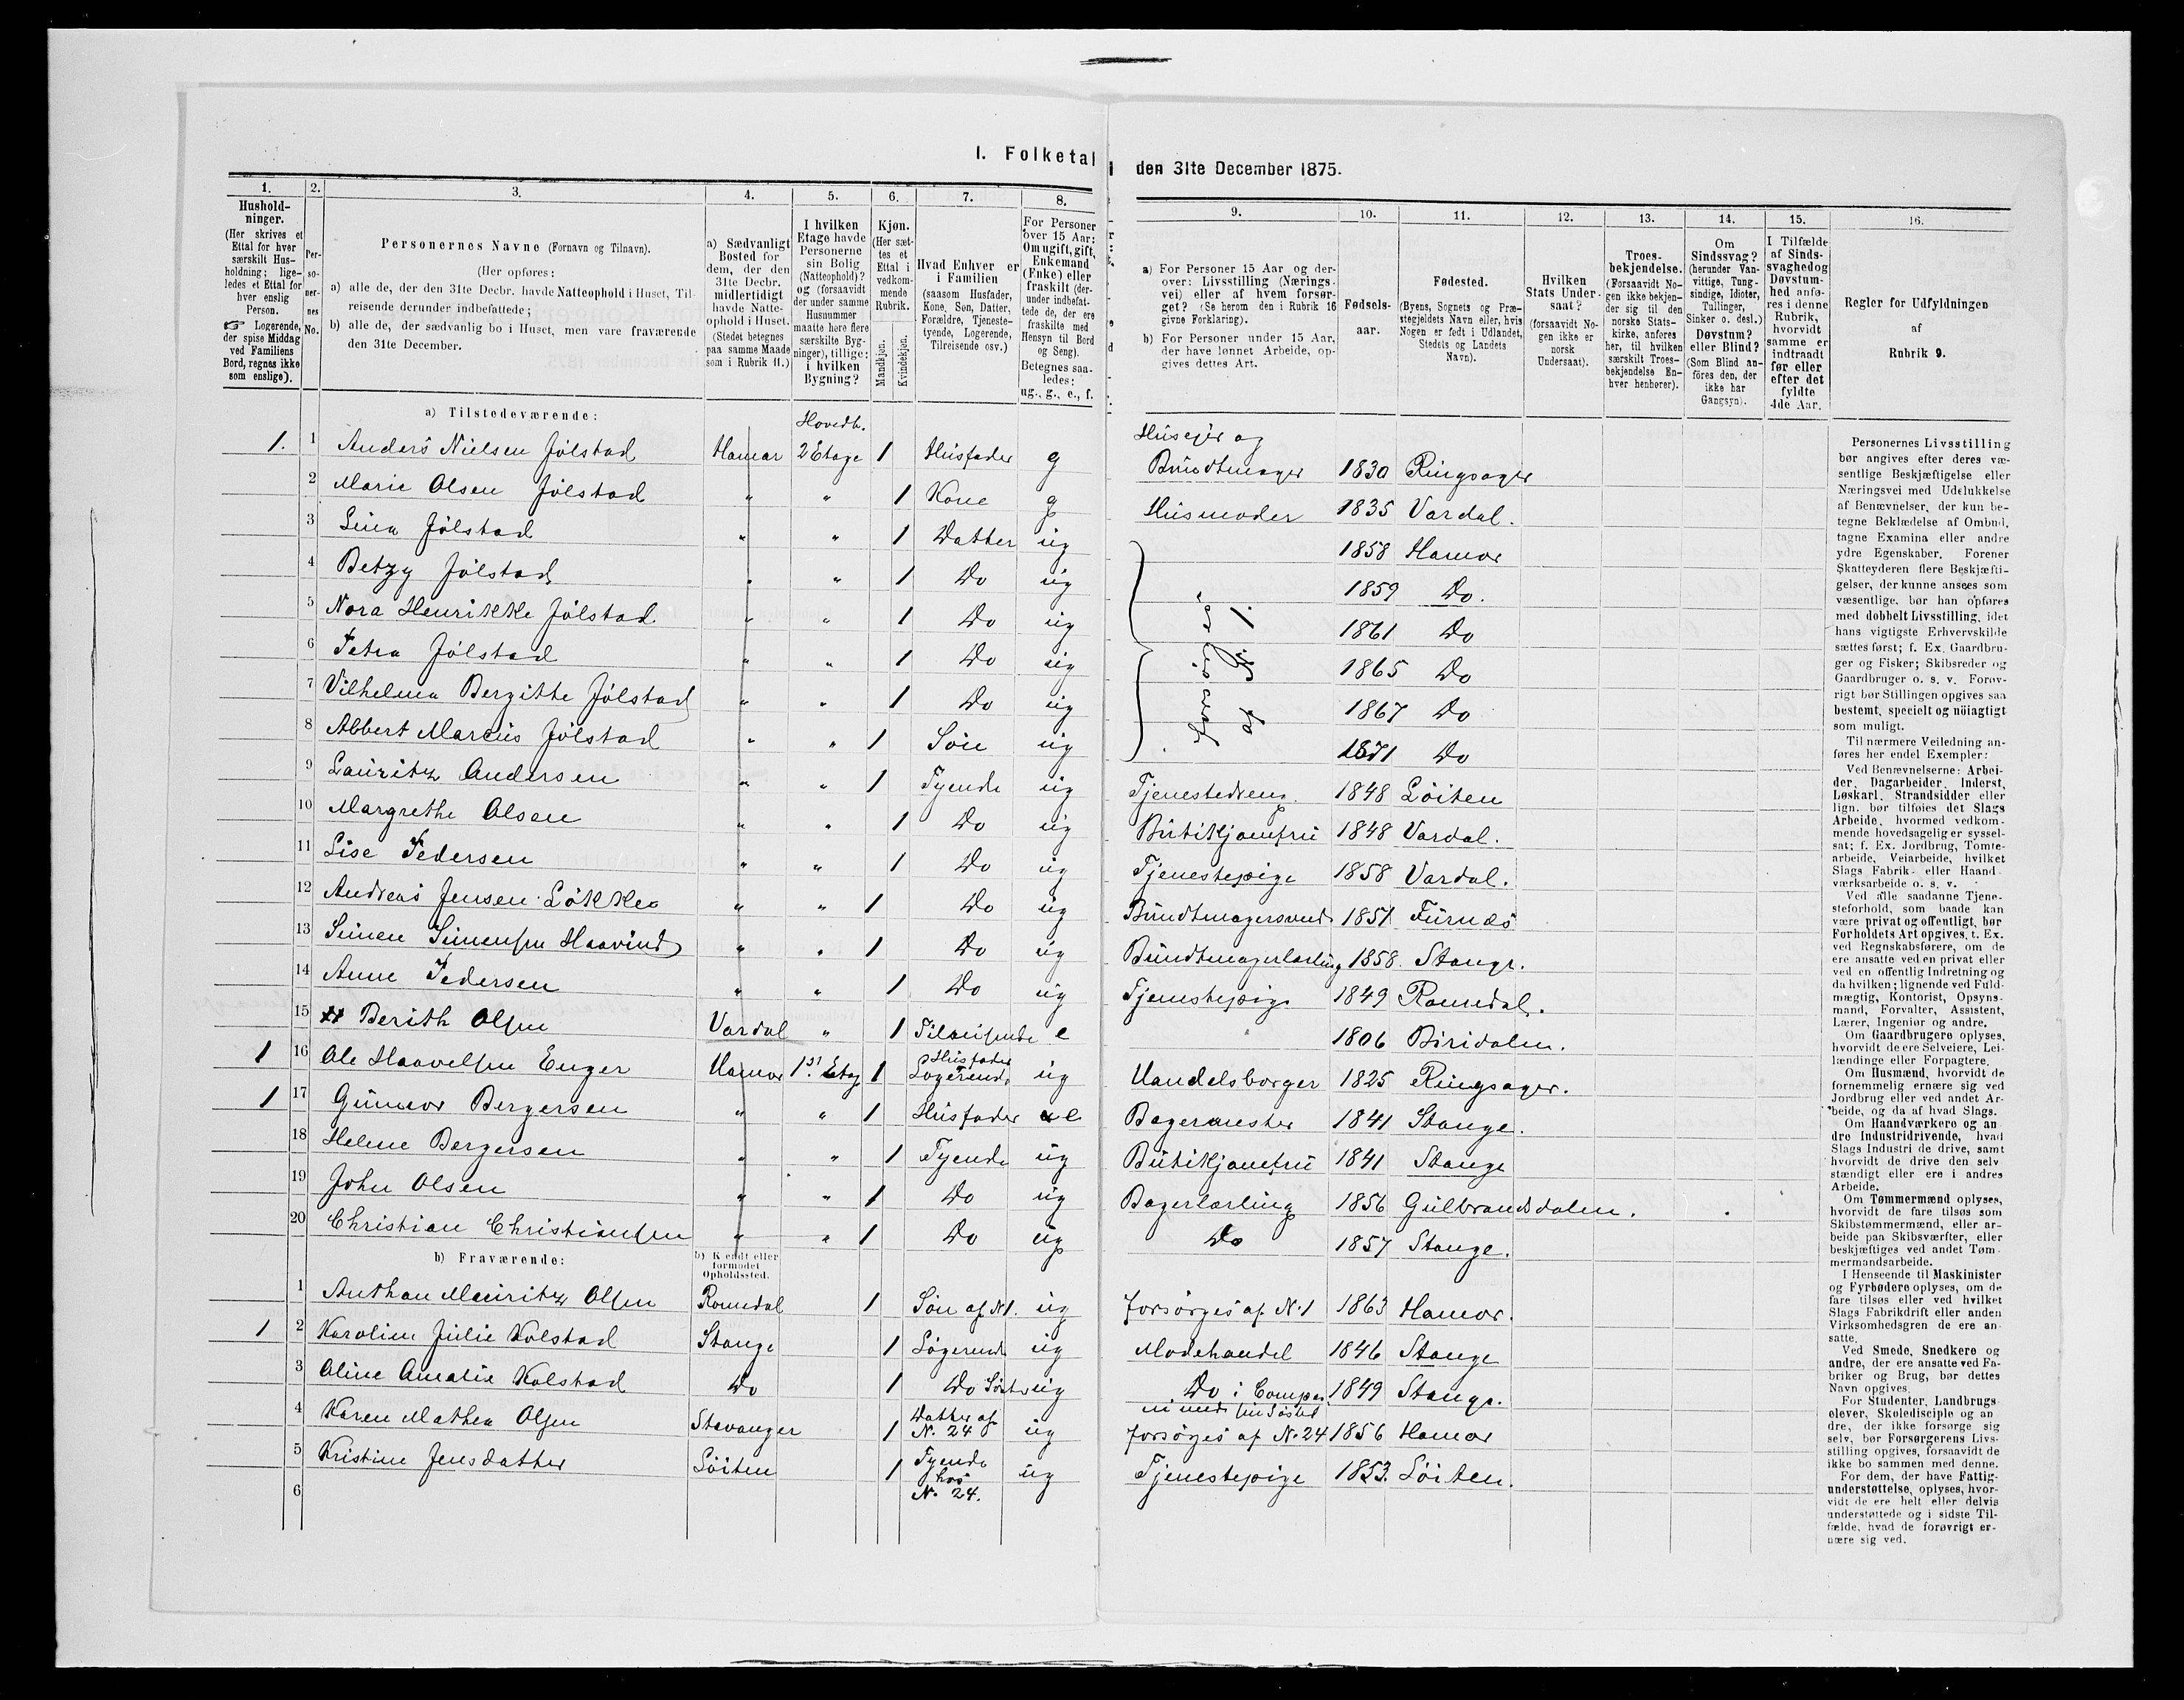 I. Folketal den 31te December 1875.
1. 2. 3. 4. 5. 6. 7. 8. 9. 10. 11. 12. 13. 14. 15. 16.
Hushold-
ninger.
(Her skrives et
Ettal for hver
særskilt Hus-
holdning; lige-
ledes et Ettal for
hver enslig
Person.
☞ Logerende,
der spise Middag
ved Familiens
Bord, regnes ikke
som enslige).
Per-
so-
ner-
nes
No.
Personernes Navne (Fornavn og Tilnavn).
(Her opføres:
a) alle de, der den 31te Decbr. havde Natteophold i Huset, Til-
reisende derunder indbefattede;
b) alle de, der sædvanlig bo i Huset, men vare fraværende
den 31te December.
a) Sædvanligt
Bosted for
dem, der den
31te Decbr.
midlertidigt
havde Natte-
ophold i Huset.
(Stedet betegnes
paa samme Maade
som i Rubrik 11.)
I hvilken
Etage havde
Personerne
sin Bolig
(Natteophold)?
og (forsaavidt
der under samme
Husnummer
maatte høre flere
særskilte Byg-
ninger), tillige:
i hvilken
Bygning?
Kjøn.
(Her sæt-
tes et
Ettal i
vedkom-
mende
Rubrik.
Mandkjøn.
Kvindekjøn.
Hvad Enhver er
i Familien
(saasom Husfader,
Kone, Søn, Datter,
Forældre, Tjeneste-
tyende, Logerende,
Tilreisende osv.)
For Personer
over 15 Aar:
Om ugift, gift,
Enkemand
(Enke) eller
fraskilt (der-
under indbefat-
tede de, der ere
fraskilte med
Hensyn til Bord
og Seng).
Betegnes saa-
ledes:
ug., g., e., f.
a) For Personer 15 Aar og der-
over: Livsstilling (Nærings-
vei) eller af hvem forsør-
get? (Se herom den i Rubrik 16
givne Forklaring).
b) For Personer under 15 Aar,
der have lønnet Arbeide, op-
gives dettes Art.
Fødsels-
aar.
Fødested.
(Byens, Sognets og Præ-
stegjeldets Navn eller, hvis
Nogen er født i Udlandet,
Stedets og Landets
Navn).
Hvilken
Stats Under-
saat?
(forsaavidt No-
gen ikke er
norsk
Undersaat).
Troes-
bekjendelse.
(Forsaavidt No-
gen ikke bekjen-
der sig til den
norske Stats-
kirke, anføres
her, til hvilken
særskilt Troes-
bekjendelse En-
hver henhører).
Om
Sindssvag?
(herunder Van-
vittige, Tung-
sindige, Idioter,
Tullinger,
Sinker o. desl.)
Døvstum?
eller Blind?
(Som Blind an-
føres den, der
ikke har
Gangsyn).
I Tilfælde
af Sinds-
svaghed og
Døvstum-
hed anfø-
res i denne
Rubrik,
hvorvidt
samme er
indtraadt
før eller
efter det
fyldte
4de Aar.
Regler for Udfyldningen
af
Rubrik 9.
a) Tilstedeværende:
Hovedb. Huseier og
1. 1 Anders Nielsen Jölstad Hamar 2 Etage 1 Husfader g Bundtmager 1830 Ringsager
2 Marie Olsen Jölstad " " 1 Kone g Husmoder 1835 Vardal.
3 Lina Jölstad " " 1 Datter ug 1858 Hamar
4 Betzy Jölstad " " 1 Do ug 1859 Do.
5 Nora Henrikke Jölstad " " 1 Do ug 1861 Do
6 Petra Jölstad " " 1 Do ug 1865 Do
7 Vilhelma Bergitte Jölstad " " 1 Do ug 1867 Do
8 Abbert Marcus Jölstad " " 1 Sön ug 1871 Do
9 Lauritz Andersen " " 1 Tyende ug Tjenestedreng 1848 Löiten
10 Margrethe Olsen " " 1 Do ug Butikjomfru 1848 Vardal.
11 Lise Pedersen " " 1 Do ug Tjenestepige 1858 Vardal.
12 Andreas Jensen Lökken " " 1 Do ug Bundtmagersvend 1851 Furnæs
13 Simen Simensen Haavind " " 1 Do ug Bundtmagerlærling 1858. Stange.
14 Anne Pedersen " " 1 Do ug Tjenestepige 1849 Romedal.
15 Berith Olsen Vardal " 1 Tilreisende e 1806 Biridalen.
1 16 Ole Haavelsen Enger Hamar 1st Etag 1 Husfader Logerende ug Handelsborger 1825 Ringsager.
1 17 Gunnar Bergersen " " 1 Husfader e Bagermester 1841 Stange.
18 Helene Bergersen " " 1 Tyende ug Butikjomfru 1841 Stange
19 John Olsen " " 1 Do ug Bagerlærling 1856 Gulbrandsdalen.
20 Christian Christiansen " " 1 Do ug Do 1857 Stange.
b) Fraværende:
b) Kendt eller
formodet
Opholdssted.
1 Anthon Mauritz Olsen Romedal 1 Sön af N 1. ug forsörges af N. 1 1863 Hamar.
1 2 Karoline Julie Kolstad Stange 1 Logerende ug Modehandel 1846 Stange
3 Oline Amalie Kolstad Do 1 Do ug Do i Compa- 1849 Stange.
ni med sin Söster
4 Karen Mathea Olsen Stavanger 1 Datter af N. 24 ug forsörges af N. 24 1856 Hamar
5 Kristine Jensdatter Löiten 1 Tyende hos N. 24. ug Tjenestepige 1853. Löiten.
6
Personernes Livsstilling
bør angives efter deres væ-
sentlige Beskjæftigelse eller
Næringsvei med Udelukkelse
af Benævnelser, der kun be-
tegne Beklædelse af Ombud,
tagne Examina eller andre
ydre Egenskaber. Forener
Skatteyderen flere Beskjæfti-
gelser, der kunne ansees som
væsentlige, bør han opføres
med dobbelt Livsstilling, idet
hans vigtigste Erhvervskilde
sættes først; f. Ex. Gaardbru-
ger og Fisker; Skibsreder og
Gaardbruger o. s. v. Forøv-
rigt bør Stillingen opgives saa
bestemt, specielt og nöiagtigt
som muligt.
Til nærmere Veiledning an-
føres her endel Exempler:
Ved Benævnelserne: Arbei-
der, Dagarbeider, Inderst,
Løskarl, Strandsidder eller
lign. bør tilføies det Slags
Arbeide, hvormed vedkom-
mende hovedsagelig er syssel-
sat; f. Ex. Jordbrug, Tomte-
arbeide, Veiarbeide, hvilket
Slags Fabrik- eller Haand-
værksarbeide o. s. v.
Ved alle saadanne Tjene-
steforhold, som baade kan
være privat og offentligt, bør
Forholdets Art opgives, t. Ex.
ved Regnskabsførere, om de
ere ansatte ved en privat eller
ved en offentlig Indretning og
da hvilken; lignende ved Fuld-
mægtig, Kontorist, Opsyns-
mand, Forvalter, Assistent,
Lærer, Ingeniør og andre.
Om Gaardbrugere oplyses,
hvorvidt de ere Selveiere, Lei-
lændinge eller Forpagtere.
Om Husmænd, hvorvidt de
fornemmelig ernære sig ved
Jordbrug eller ved andet Ar-
beide, og da af hvad Slags.
Om Haandværkere og an-
dre Industridrivende, hvad
Slags Industri de drive, samt
hvorvidt de drive den selv-
stændigt eller ere i andres
Arbeide.
Om Tømmermænd oplyses,
hvorvidt de fare tilsøs som
Skibstømmermænd, eller ar-
beide paa Skibsværfter, eller
beskjæftiges ved andet Tøm-
mermandsarbeide.
I Henseende til Maskinister
og Fyrbødere oplyses, om de
fare tilsøs eller ved hvilket
Slags Fabrikdrift eller anden
Virksomhedsgren de ere an-
satte.
Ved Smede, Snedkere og
andre, der ere ansatte ved Fa-
briker og Brug, bør dettes
Navn opgives.
For Studenter, Landbrugs-
elever, Skoledisciple og an-
dre, der ikke forsørge sig
selv, bør Forsørgerens Livs-
stilling opgives, forsaavidt de
ikke bo sammen med denne.
For dem, der have Fattig-
understøttelse, oplyses, hvor-
vidt de ere helt eller delvis
understøttede og i sidste Til-
fælde, hvad de forøvrigt er-
nære sig ved.